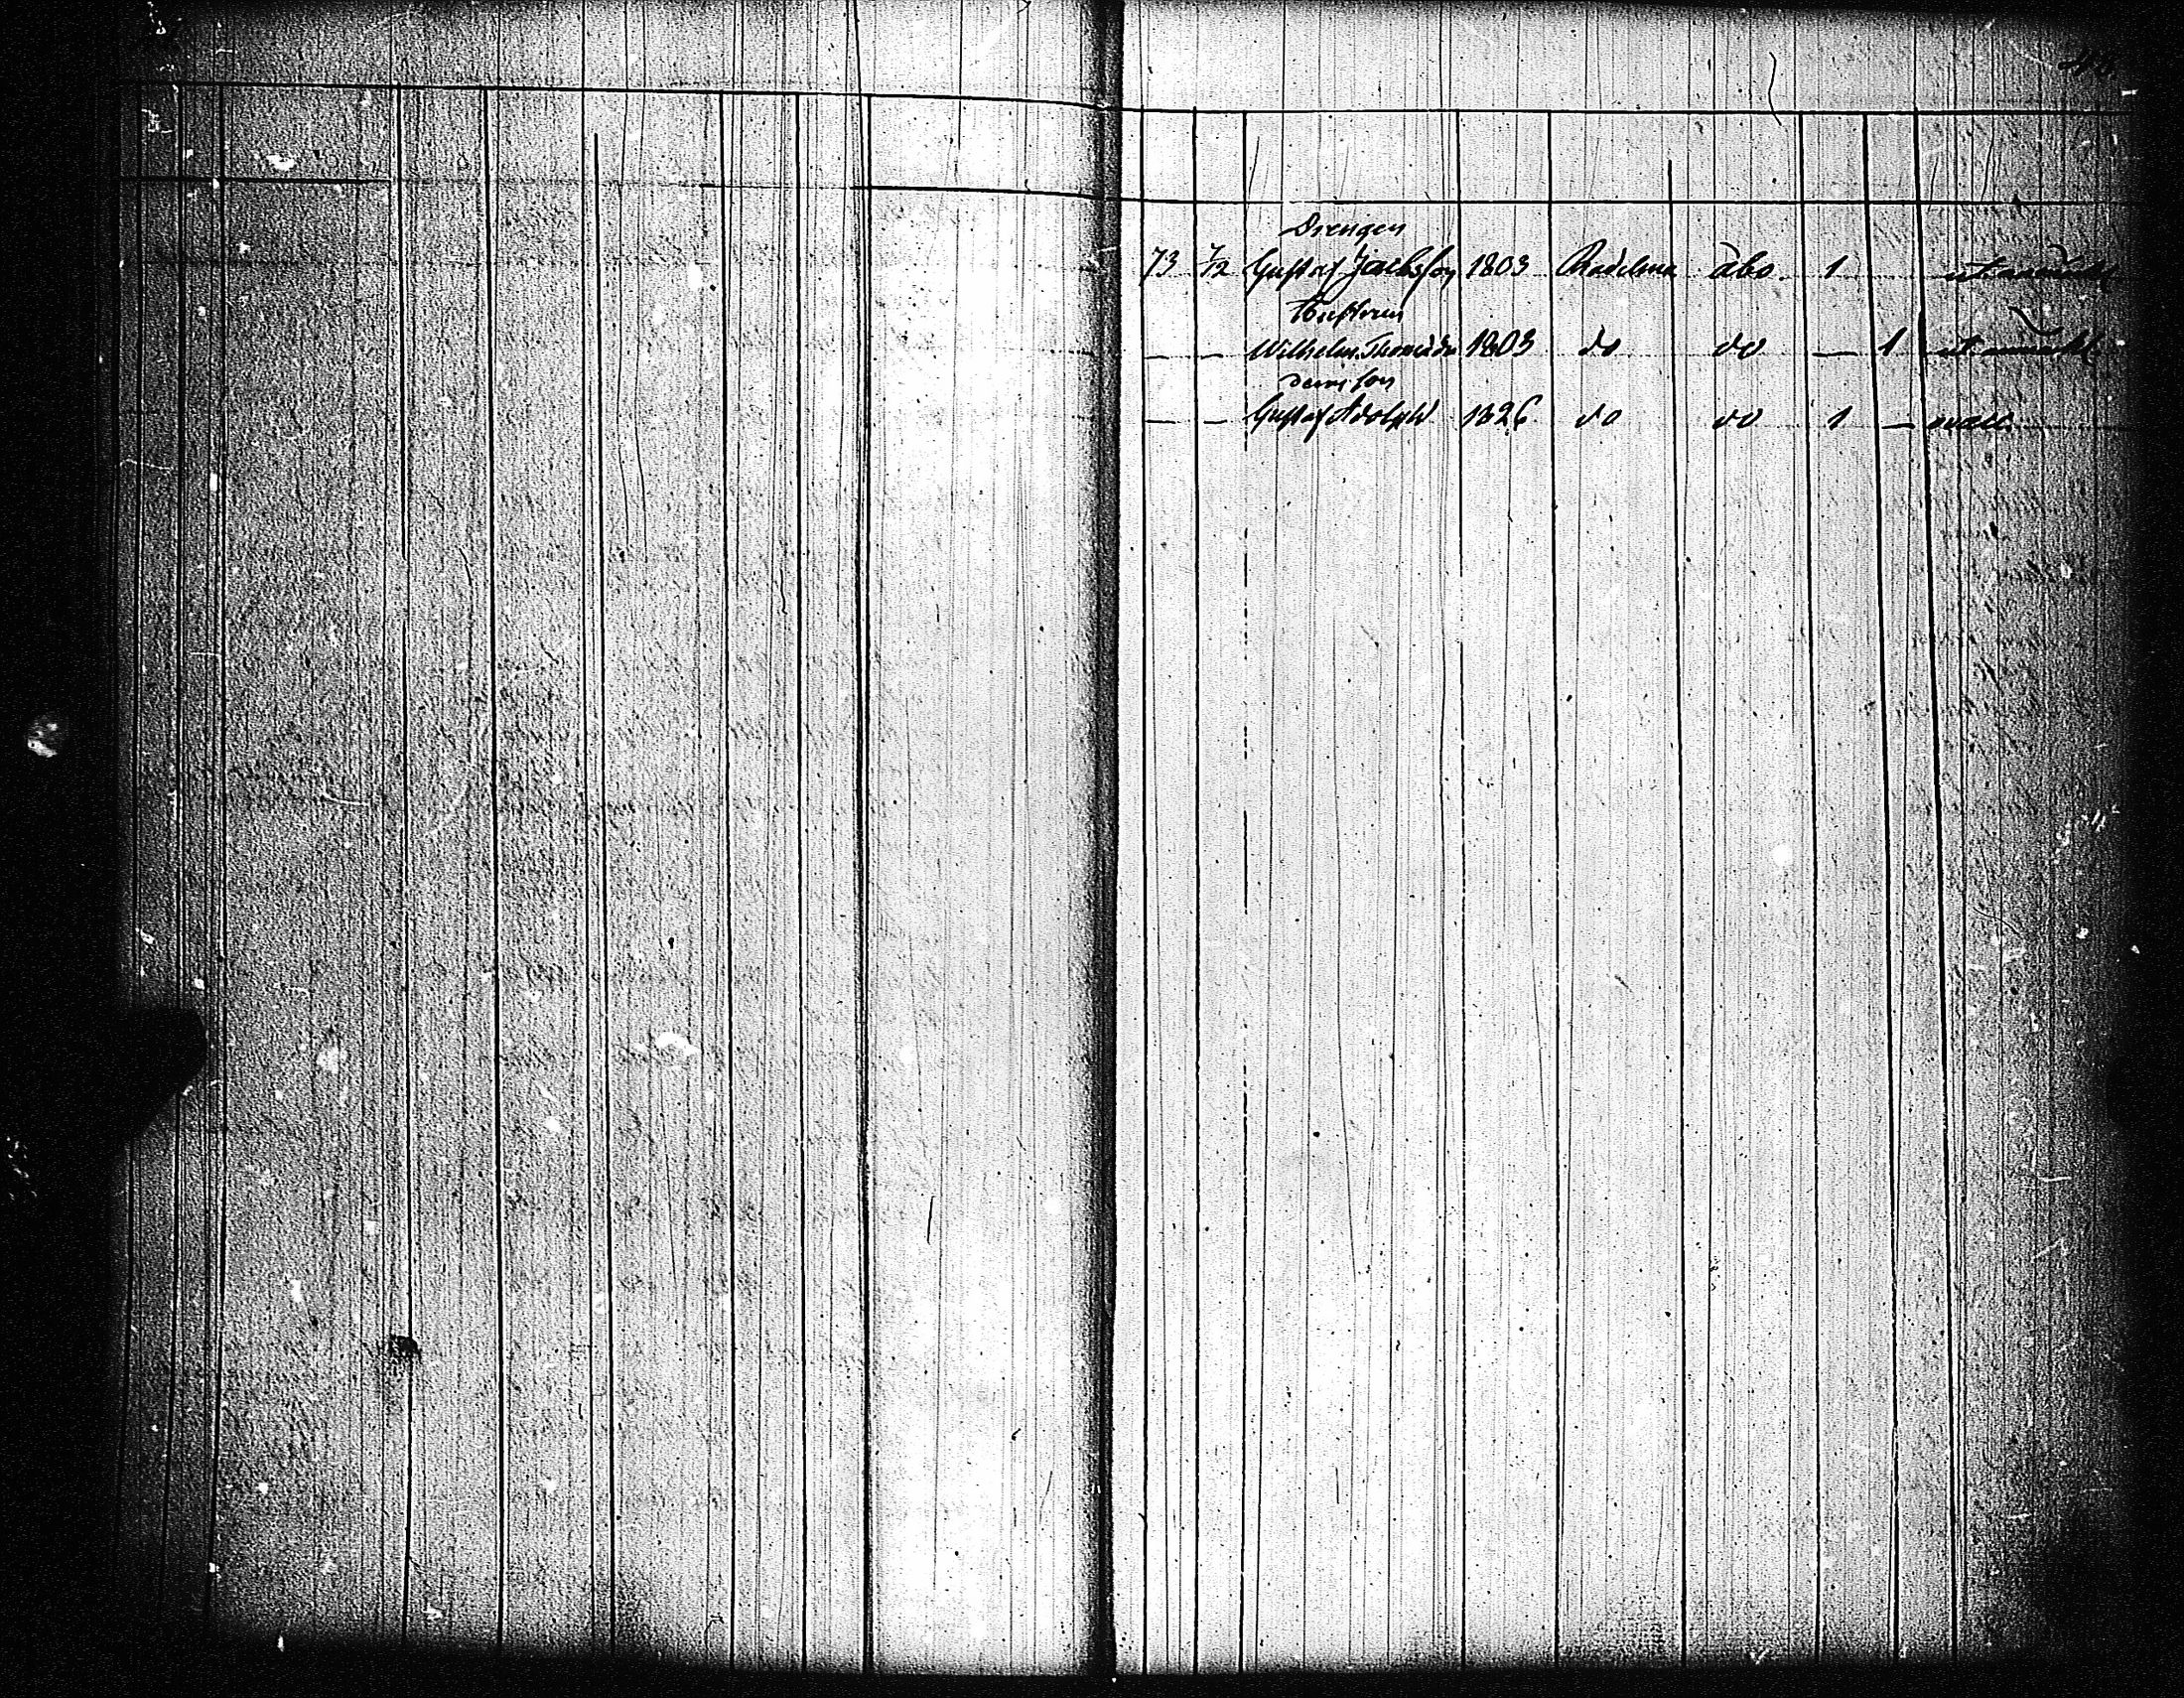 Drengen
73 7/12 Gustaf Jacobsson 1803 Åbo. 1
Hustrun
— — Wilhelm. Thomasdr 1803 do do — 1
deras son
— — Gustaf Adolph 1826 do do 1 — vacc.